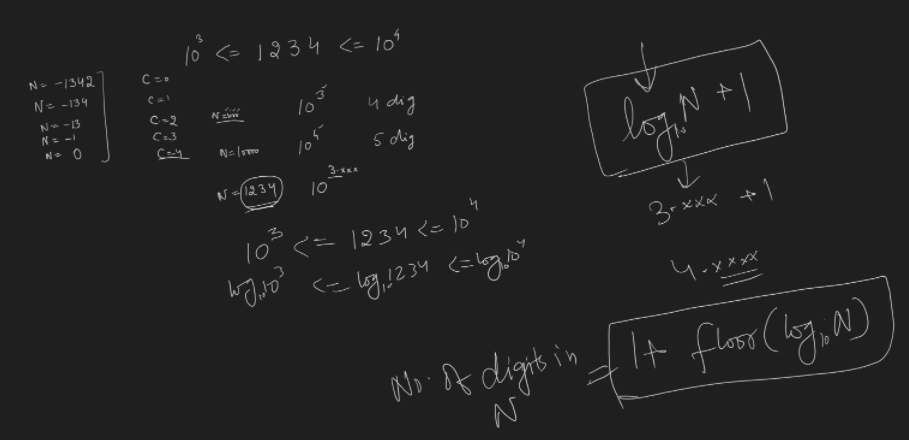 10³ <= 1234 <= 10⁴
N = -1342 C=0
N = -134 C=1
N = -13 C=2
N = -1 C=3
N = 0 C=4
10³ 4 dig
N=10000 10⁴ 5 dig
N = 1234 10^3.xxx
10³ <= 1234 <= 10⁴
log₁₀10³ <= log₁₀1234 <= log₁₀10⁴
log₁₀N + 1
3.xxx + 1
4.xxxx
No. of digits in N = 1+ floor(log₁₀N)